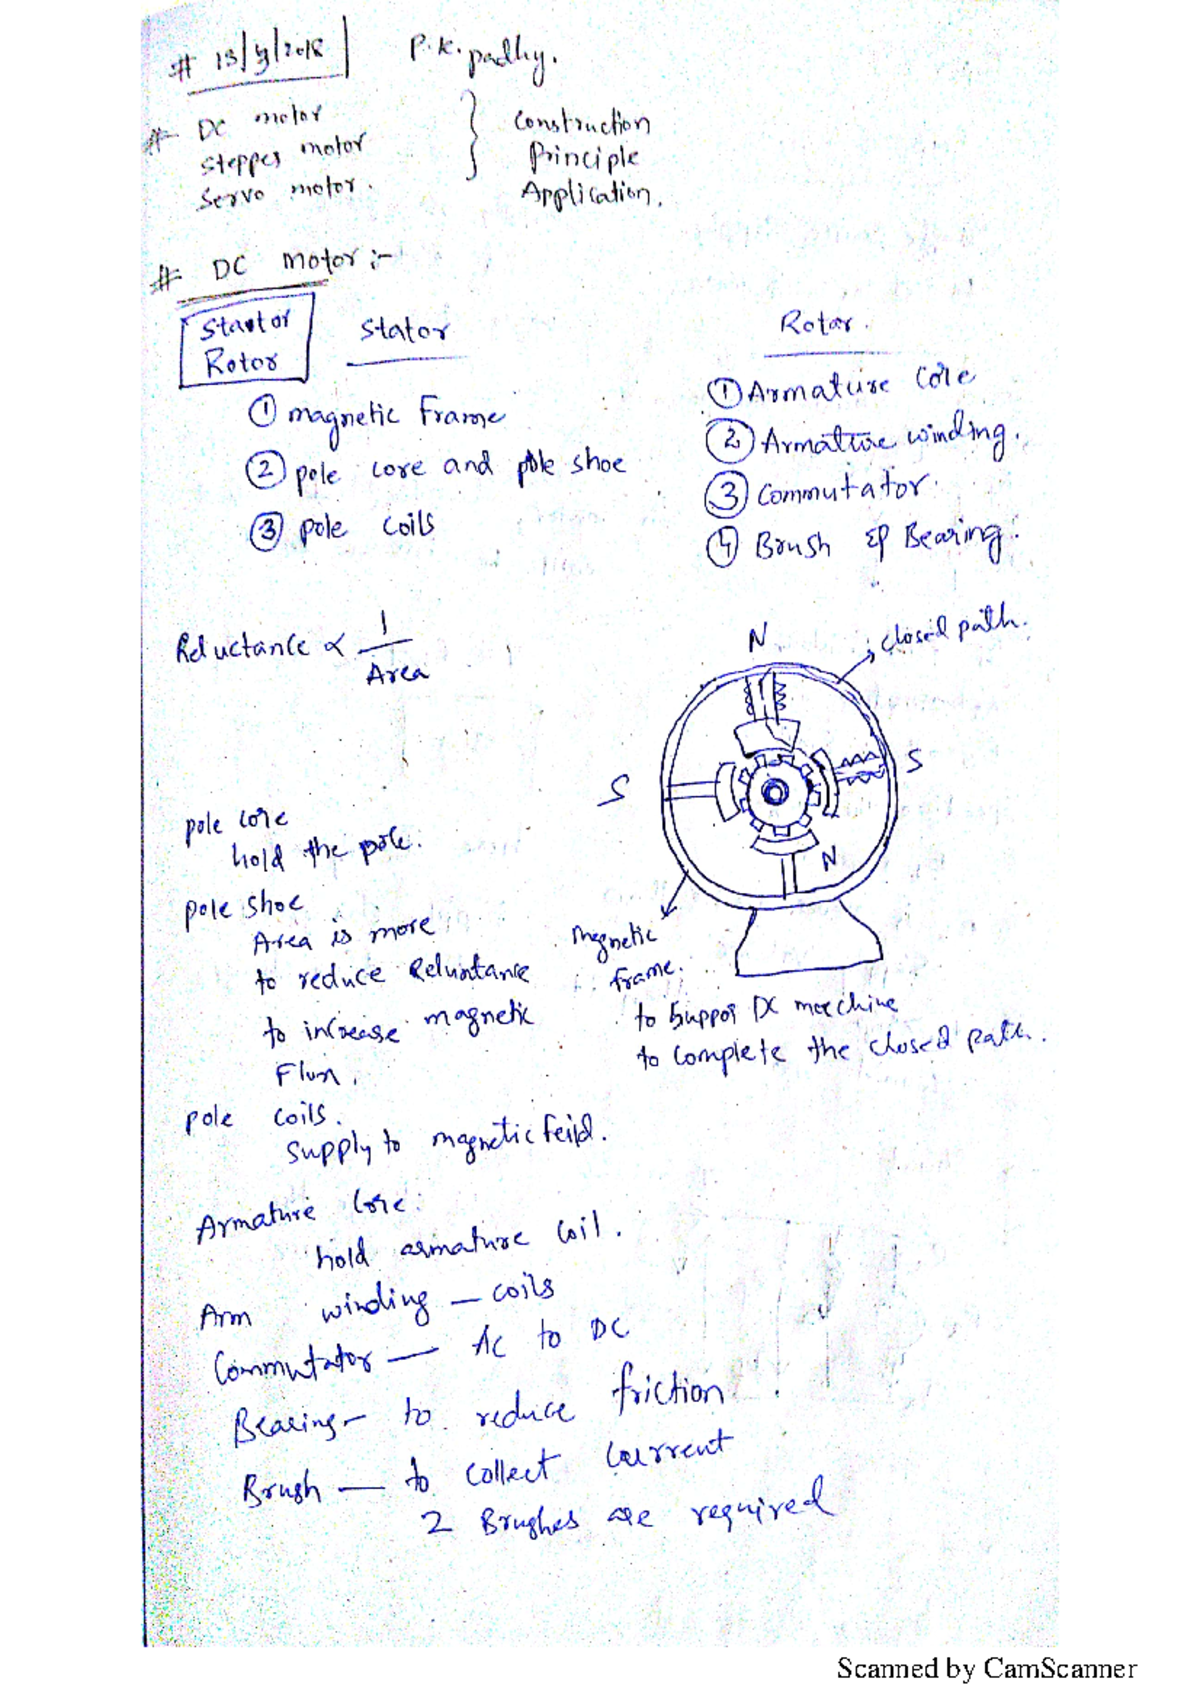 # 13/9/2018 P.K. padhy.
# DC motor
Stepper motor
Servo motor.
Construction
Principle
Application.
# DC motor :-
Stator
Rotor
Stator
① magnetic Frame
② pole core and pole shoe
③ pole coils
Rotor.
① Armature Core
② Armature winding.
③ Commutator.
④ Brush & Bearing.
Reluctance ∝ 1/Area
N
closed path.
S
S
N
pole core
hold the pole.
pole shoe
Area is more
to reduce Reluctance
to increase magnetic
Flux.
magnetic
frame.
to suppor DC machine
to complete the closed path.
pole coils.
supply to magnetic feild.
Armature Core:
hold armature coil.
Arm winding — coils
Commutator — AC to DC
Bearing - to reduce friction
Brush — to collect current
2 Brushes are required
Scanned by CamScanner